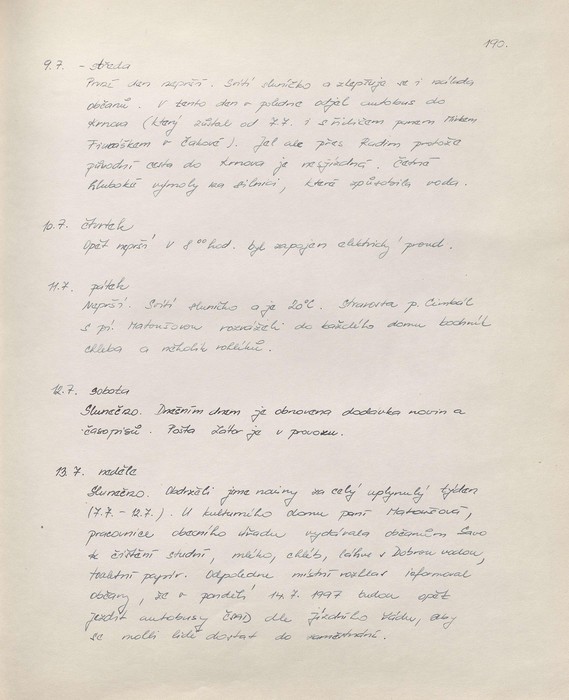 190.
9.7. - středa
První den neprší. Svítí sluníčko a zlepšuje se i nálada
občanů. V tento den v poledne odjel autobus do
Krnova (který zůstal od 7.7. i s řidičem panem Mirkem
v Čakově). Jel ale přes Radim protože
původní cesta do Krnova je nesjízdná. Četné
hluboké výmoly na silnici, které způsobila voda.
10.7. čtvrtek
Opět neprší. V 8 00 hod. byl zapojen elektrický proud.
11.7. pátek
Neprší. Svítí sluníčko a je 20°C. Starosta p. Cimbál
s pí. Matoušovou rozváželi do každého domu bochník
chleba a několik rohlíků.
12.7. sobota
Slunečno. Dnešním dnem je obnovena dodávka novin a
časopisů. Pošta Zátor je v provozu.
13.7. neděle
Slunečno. Obdrželi jsme noviny za celý uplynulý týden
(7.7. - 12.7.). U kulturního domu paní Matoušová,
pracovnice obecního úřadu vydávala občanům Savo
k čištění studní, mléko, chléb, láhve s Dobrou vodou,
toaletní papír. Odpoledne místní rozhlas informoval
občany, že v pondělí 14.7. 1997 budou opět
jezdit autobusy ČSAD dle jízdního řádu, aby
se mohli lidé dostat do zaměstnání.